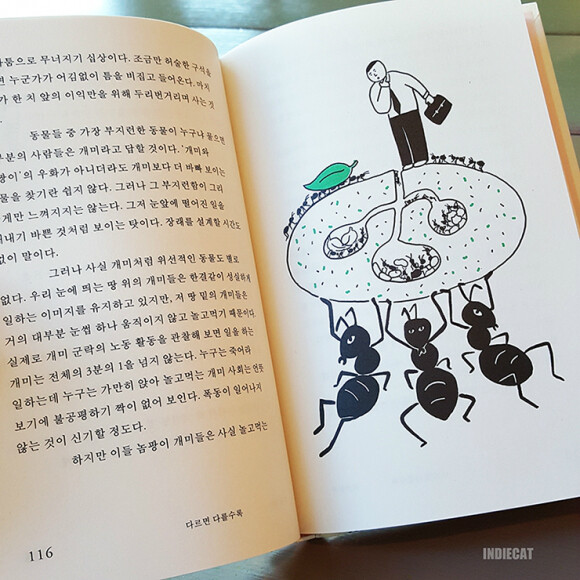 다툼으로 무너지기 십상이다. 조금만 허술한 구석을
면 누군가가 어김없이 틈을 비집고 들어온다. 마치
가 한 치 앞의 이익만을 위해 두리번거리며 사는 것
동물들 중 가장 부지런한 동물이 누구냐 물으면
부분의 사람들은 개미라고 답할 것이다. '개미와
짱이'의 우화가 아니더라도 개미보다 더 바빠 보이는
물을 찾기란 쉽지 않다. 그러나 그 부지런함이 그리
게만 느껴지지는 않는다. 그저 눈앞에 떨어진 일을
내기 바쁜 것처럼 보이는 탓이다. 장래를 설계할 시간도
없이 말이다.
그러나 사실 개미처럼 위선적인 동물도 별로
없다. 우리 눈에 띄는 땅 위의 개미들은 한결같이 성실하게
일하는 이미지를 유지하고 있지만, 저 땅 밑의 개미들은
거의 대부분 눈썹 하나 움직이지 않고 놀고먹기 때문이다.
실제로 개미 군락의 노동 활동을 관찰해 보면 일을 하는
개미는 전체의 3분의 1을 넘지 않는다. 누구는 죽어라
일하는데 누구는 가만히 앉아 놀고먹는 개미 사회는 언뜻
보기에 불공평하기 짝이 없어 보인다. 폭동이 일어나지
않는 것이 신기할 정도다.
하지만 이들 놈팡이 개미들은 사실 놀고먹는
다르면 다를수록
116
INDIECAT